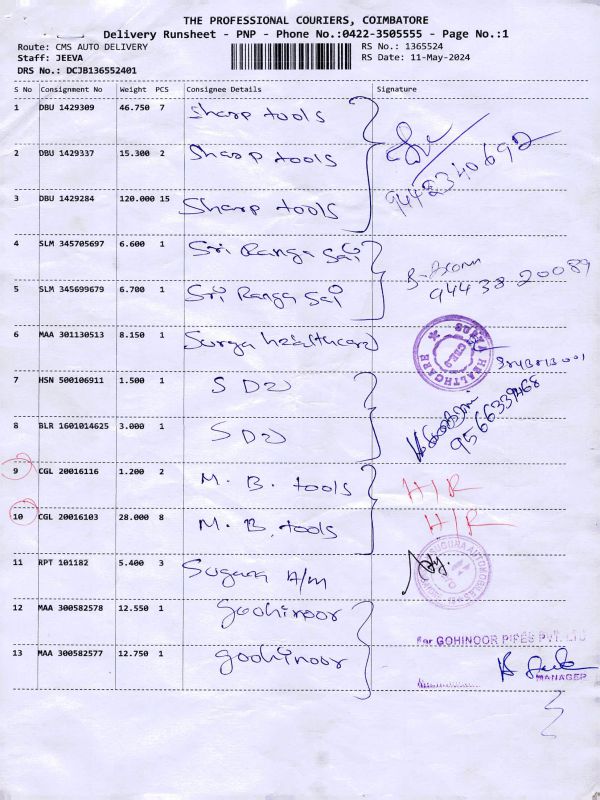 THE PROFESSIONAL COURIERS, COIMBATORE
Delivery Runsheet - PNP - Phone No.:0422-3505555 - Page No.:1
Route: CMS AUTO DELIVERY
Staff: JEEVA
DRS No.: DCJB136552401
RS No.: 1365524
RS Date: 11-May-2024
S No Consignment No Weight PCS Consignee Details Signature
1 DBU 1429309 46.750 7 Sharp tools
2 DBU 1429337 15.300 2 Sharp tools
9442340692
3 DBU 1429284 120.000 15 Sharp tools
4 SLM 345705697 6.600 1 Sri Ranga Sai
5 SLM 345699679 6.700 1 Sri Ranga Sai
94438 20089
6 MAA 301130513 8.150 1 Surya healthcare
SURYA HEALTHCARE
7 HSN 500106911 1.500 1 S D
8 BLR 1601014625 3.000 1 S D
9566339468
9 CGL 20016116 1.200 2 M. B. tools H/R
10 CGL 20016103 28.000 8 M. B. tools H/R
11 RPT 101182 5.400 3 Suguna A/m
12 MAA 300582578 12.550 1 goohinoor
13 MAA 300582577 12.750 1 goohinoor
For GOHINOOR PIPES PVT. LTD
MANAGER